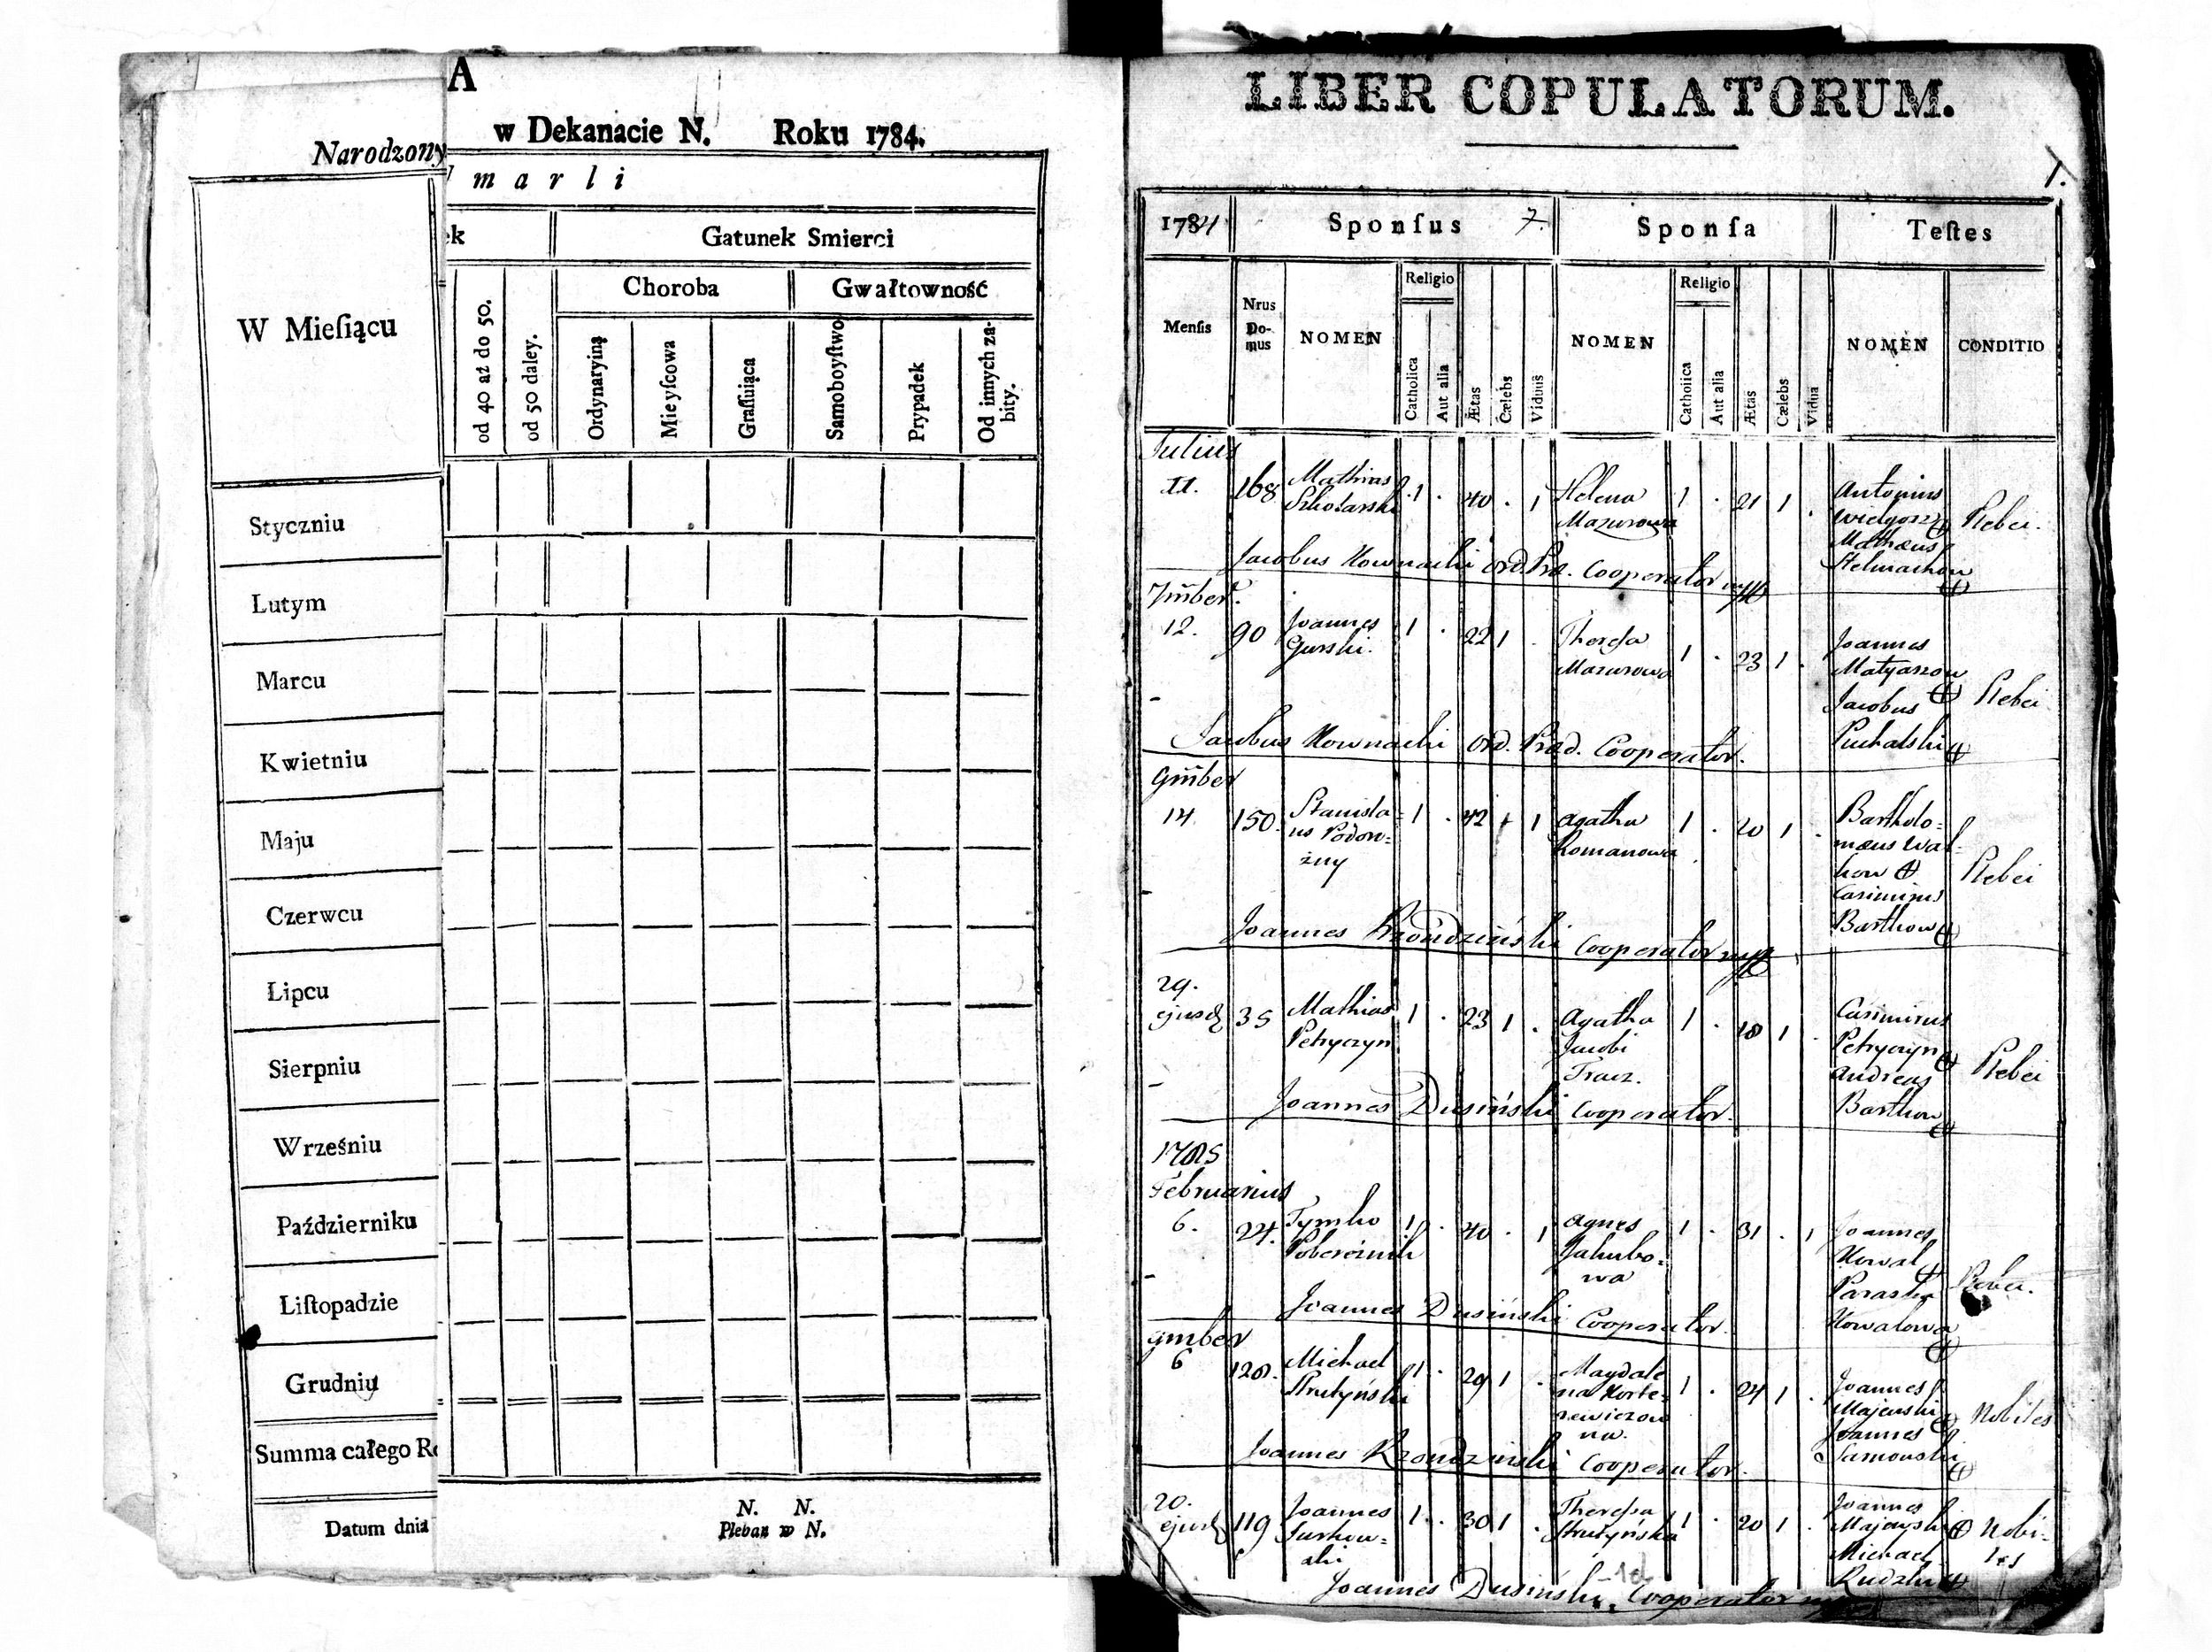 A
w Dekanacie N. Roku 1784.
Narodzony
marli
ek
Gatunek Smierci
Choroba
Gwałtowność
W Mieſiącu
od 40 aż do 50.
od 50 daley.
Ordynaryiną
Mieyſcowa
Graſſuiąca
Samoboyſtwo
Prypadek
Od innych za-
bity.
Styczniu
Lutym
Marcu
Kwietniu
Maju
Czerwcu
Lipcu
Sierpniu
Wrześniu
Październiku
Liſtopadzie
Grudniu
Summa całego Ro
Datum dnia
N. N.
Pleban w N.
LIBER COPULATORUM.
1.
1784
Sponſus 7.
Sponſa
Teſtes
Menſis
Nrus
Do-
mus
NOMEN
Religio
Catholica
Aut alia
Ætas
Cælebs
Viduus
NOMEN
Religio
Catholica
Aut alia
Ætas
Cælebs
Vidua
NOMEN
CONDITIO
Julius
11. 168 Mathias 1 . 40 . 1 Helena 1 . 21 1 . Antonius
Mazurowa
Mathæus
Plebei.
Jacobus Kownacki Ord. Præ. Cooperator mpp
7mber.
12. 90 Joannes 1 . 22 1 . Theresa 1 . 23 1 . Joannes
Gurski. Mazurowa Matyaszow
Jacobus Plebei
Puchalski
Jacobus Kownacki Ord. Præd. Cooperator.
9mber
14 150. Stanisla= 1 . 42 1 Agatha 1 . 20 1 . Bartholo=
us Podow= Romanowa mæus Wal=
żny kow
Casimirus Plebei
Barthow
Joannes Rządziński Cooperator mpp
29.
ejusd 35 Mathias 1 . 23 1 . Agatha 1 . 18 1 . Casimirus
Petryczyn Jacobi Petryczyn
Tracz. Andreas Plebei
Barthow
Joannes Dusiński Cooperator.
1785
Februarius
6. 24. Tymko 1 . 40 . 1 Agnes 1 . 31 . 1 Joannes
Pobereznik Jakubo= Kowal
wa Paraska Plebei.
Kowalowa
Joannes Dusiński Cooperator.
9mber
6 128. Michael 1 . 29 1 . Magdale 1 . 24 1 . Joannes
Strutyński na Majewski Nobiles
Joannes
na.
Joannes Rządziński Cooperator.
20.
ejusd 119 Joannes 1 . 30 1 . Theresia 1 . 20 1 . Joannes
Jurkow= Strutyńska Majewski Nobi=
ski Michael les
Joannes Dusiński Cooperator mpp